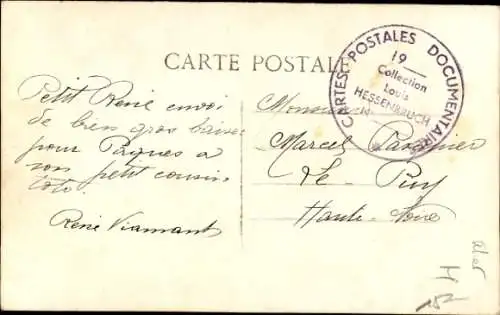 CARTE POSTALE
CARTES POSTALES DOCUMENTAIRES
19
Collection
Louis
HESSENBRUCH
Petit René envoi
de bien gros baiser
pour Pâques à
son petit cousin
toto.
René Viamant
Monsieur
Marcel
Le Puy
Haute-Loire
H
152